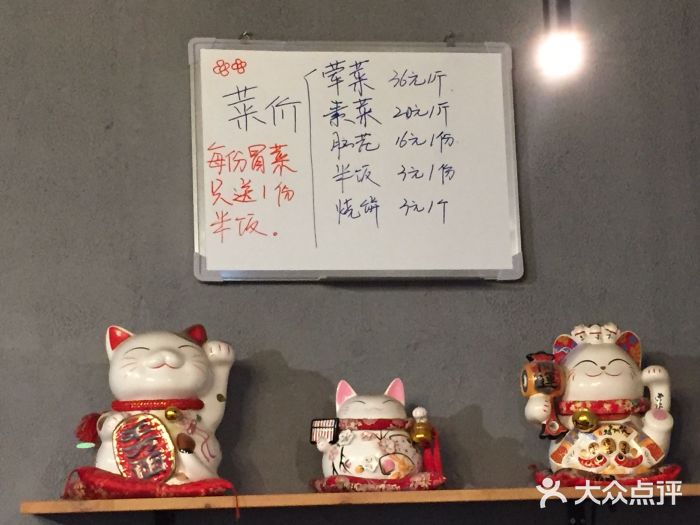 菜价
每份冒菜
只送1份
半饭。
荤菜 36元1斤
素菜 20元1斤
脑花 16元1份
半饭 3元1份
烧饼 3元1个
運
大众点评